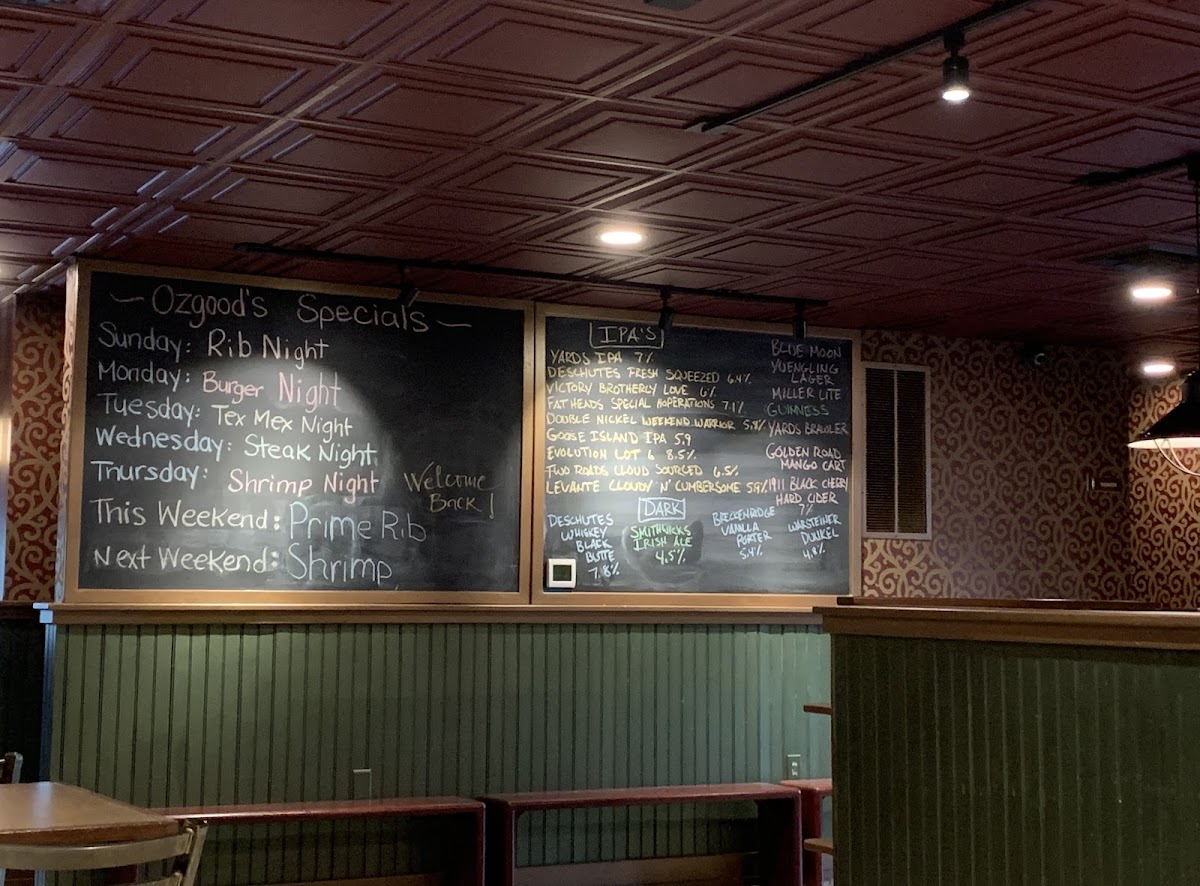 ~ Ozgood's Specials ~
Sunday: Rib Night
Monday: Burger Night
Tuesday: Tex Mex Night
Wednesday: Steak Night
Thursday: Shrimp Night
This Weekend: Prime Rib
Next Weekend: Shrimp
Welcome
Back!
IPA'S
YARDS IPA 7%
DESCHUTES FRESH SQUEEZED 6.4%
VICTORY BROTHERLY LOVE 6%
FAT HEADS SPECIAL HOPERATIONS 7.1%
DOUBLE NICKEL WEEKEND WARRIOR
GOOSE ISLAND IPA 5.9
EVOLUTION LOT 6 8.5%
TWO ROADS CLOUD SOURCED 6.5%
LEVANTE CLOUDY N' CUMBERSOME 5.9%
BLUE MOON
YUENGLING
LAGER
MILLER LITE
GUINNESS
YARDS BRAWLER
GOLDEN ROAD
MANGO CART
1911 BLACK CHERRY
HARD CIDER
7%
DARK
DESCHUTES
WHISKEY
BLACK
BUTTE
7.8%
SMITHWICKS
IRISH ALE
4.5%
BRECKENRIDGE
VANILLA
PORTER
5.4%
WARSTEINER
DUNKEL
4.8%